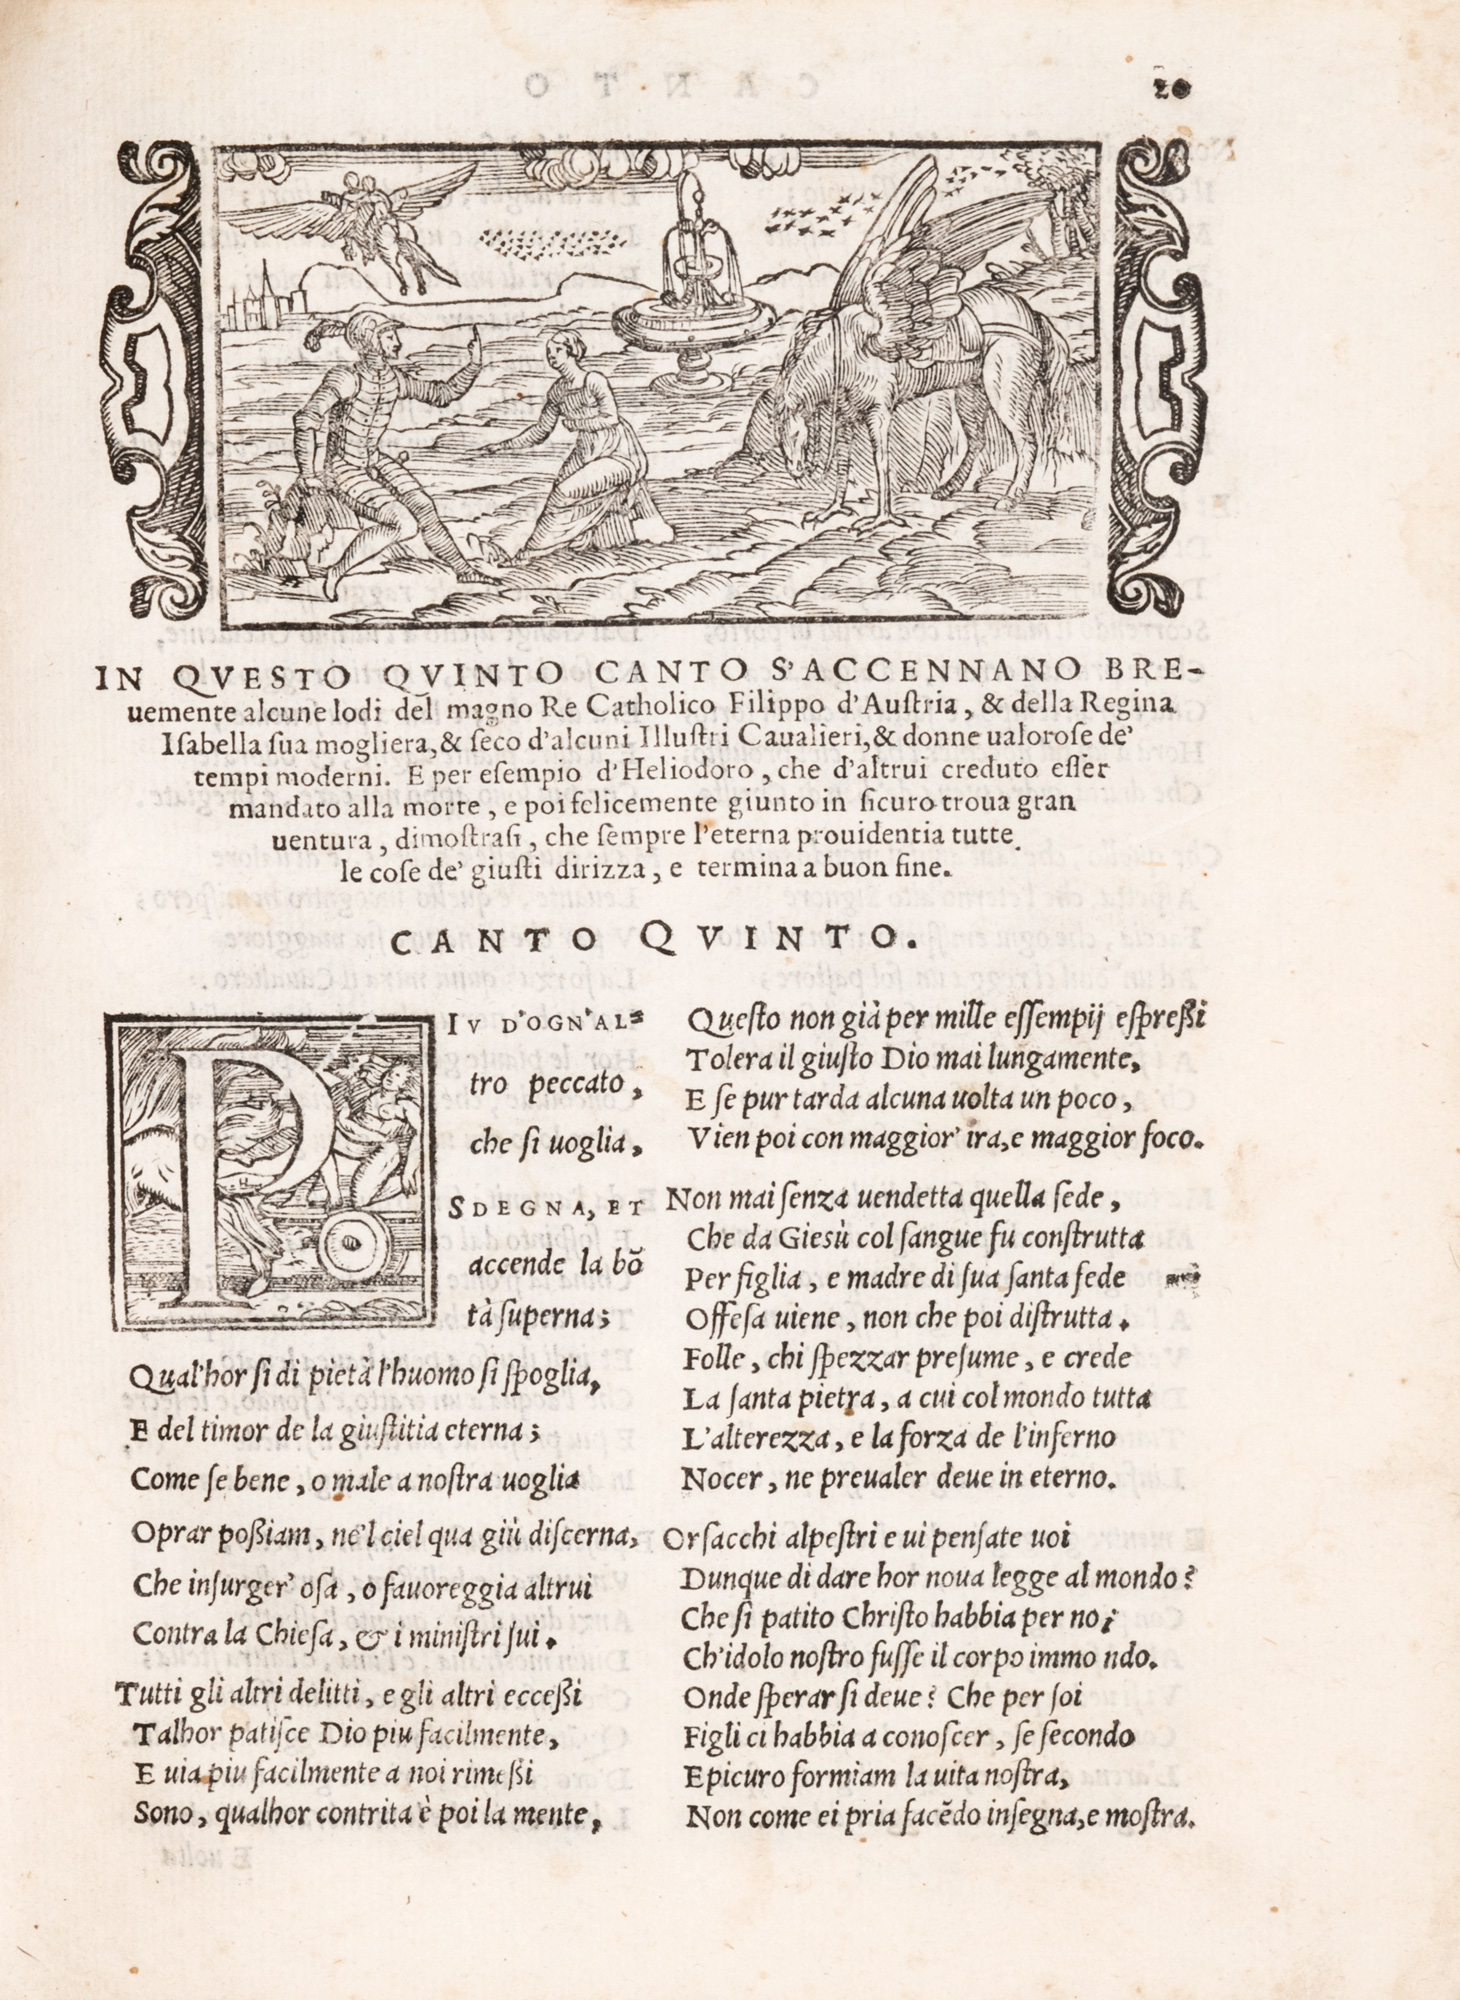 20
IN QVESTO QVINTO CANTO S'ACCENNANO BRE-
uemente alcune lodi del magno Re Catholico Filippo d'Auſtria, & della Regina
Iſabella ſua mogliera, & ſeco d'alcuni Illuſtri Caualieri, & donne ualoroſe de'
tempi moderni. E per eſempio d'Heliodoro, che d'altrui creduto eſſer
mandato alla morte, e poi felicemente giunto in ſicuro troua gran
uentura, dimoſtraſi, che ſempre l'eterna prouidentia tutte
le coſe de' giuſti dirizza, e termina a buon fine.
CANTO QVINTO.
PIV D'OGN'AL=
tro peccato,
che ſi uoglia,
SDEGNA, ET
accende la bõ
tà ſuperna;
Qual'hor ſi di pietà l'huomo ſi ſpoglia,
E del timor de la giuſtitia eterna;
Come ſe bene, o male a noſtra uoglia
Oprar poßiam, ne'l ciel qua giù diſcerna,
Che inſurger' oſa, o fauoreggia altrui
Contra la Chieſa, & i miniſtri ſui.
Tutti gli altri delitti, e gli altri ecceßi
Talhor patiſce Dio piu facilmente,
E uia piu facilmente a noi rimeßi
Sono, qualhor contrita è poi la mente,
Queſto non già per mille eſſempij eſpreßi
Tolera il giuſto Dio mai lungamente,
E ſe pur tarda alcuna uolta un poco,
Vien poi con maggior' ira, e maggior foco.
Non mai ſenza uendetta quella ſede,
Che da Gieſù col ſangue fu conſtrutta
Per figlia, e madre di ſua ſanta fede
Offeſa uiene, non che poi diſtrutta.
Folle, chi ſpezzar preſume, e crede
La ſanta pietra, a cui col mondo tutta
L'alterezza, e la forza de l'inferno
Nocer, ne preualer deue in eterno.
Orſacchi alpeſtri e ui penſate uoi
Dunque di dare hor noua legge al mondo?
Che ſi patito Chriſto habbia per noi
Ch'idolo noſtro fuſſe il corpo immo ndo.
Onde ſperar ſi deue? Che per ſoi
Figli ci habbia a conoſcer, ſe ſecondo
Epicuro formiam la uita noſtra,
Non come ei pria facẽdo inſegna, e moſtra.